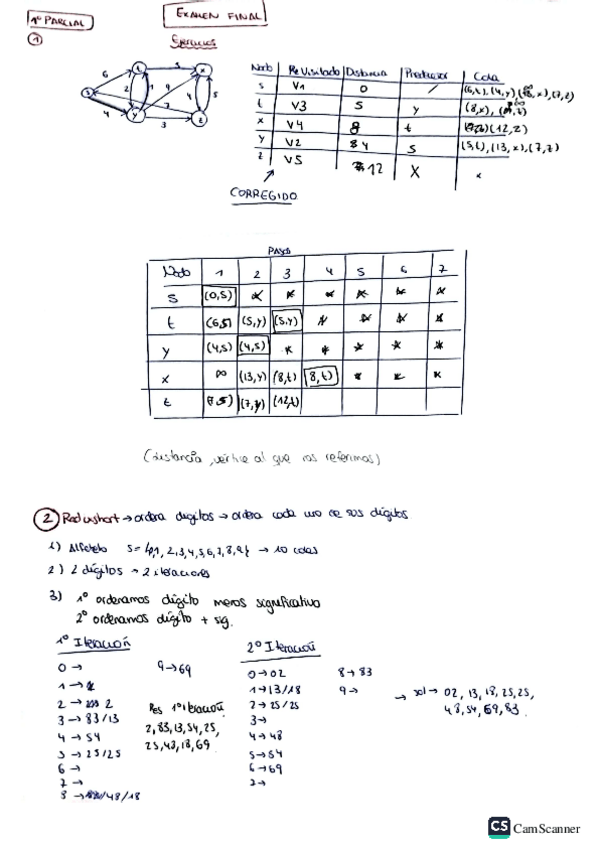 1º PARCIAL
EXAMEN FINAL
1
Ejercicios
6 5 2 1 9 4 5 4 7 3
t x s y z
Nodo Re Visitado Distancia Predecesor Cola
s V1 0 / (6,t), (4,y), x), (7,z)
t V3 5 y (8,x),
x V4 8 t (12,z)
y V2 4 s (5,t), (13,x), (7,z)
z V5 12 X
CORREGIDO
PASOS
Nodo 1 2 3 4 5 6 7
s (0,S) * * * * * *
t (6,S) (5,y) (5,y) * * * *
y (4,S) (4,s) * * * * *
x ∞ (13,y) (8,t) (8,t) * * *
t (7,S) (7,y) (12,t)
(distancia, vértice al que nos referimos)
2 → ordena dígitos → ordena cada uno de sus dígitos
1) Alfabeto S = {0,1,2,3,4,5,6,7,8,9} → 10 colas
2) 2 dígitos → 2 iteraciones
3) 1º ordenamos dígito menos significativo
2º ordenamos dígito + sig.
1º Iteración
0 → 9 → 69
1 →
2 → 2
3 → 83/13
4 → 54
5 → 25/25
6 →
7 →
8 → /48/18
Res 1º iteración
2, 83, 13, 54, 25,
25, 48, 18, 69
2º Iteración
0 → 02 8 → 83
1 → 13/18 9 →
2 → 25/25
3 →
4 → 48
5 → 54
6 → 69
7 →
→ sol → 02, 13, 18, 25, 25,
48, 54, 69, 83
CS CamScanner